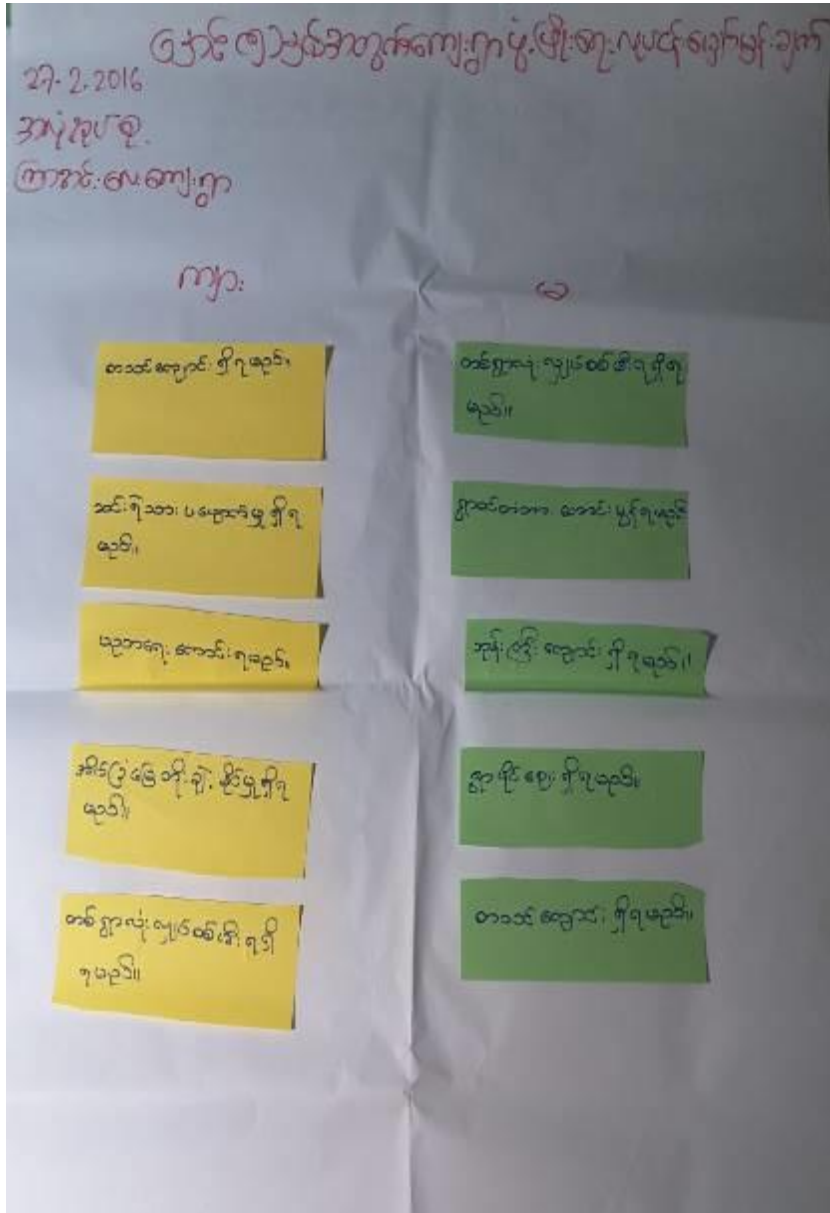 နှစ်အတွက်ကျေးရွာဖွံ့ဖြိုးရေးလုပ်ငန်းမျှော်မှန်းချက်
27-2-2016
ကြာအင်းလေးကျေးရွာ
ကျား
မ
စာသင်ကျောင်းရှိရမည်။
ဆင်းရဲသားပပျောက်မှုရှိရ
မည်။
ပညာရေးကောင်းရမည်။
အိမ်ခြံမြေတိုးချဲ့နိုင်မှုရှိရ
မည်။
တစ်ရွာလုံးလျှပ်စစ်မီးရရှိ
ရမည်။
တစ်ရွာလုံးလျှပ်စစ်မီးရရှိရ
မည်။
ရွာဝင်တံတားကောင်းမွန်ရမည်
ဘုန်းကြီးကျောင်းရှိရမည်။
ရွာပိုင်ဈေးရှိရမည်။
စာသင်ကျောင်းရှိရမည်။